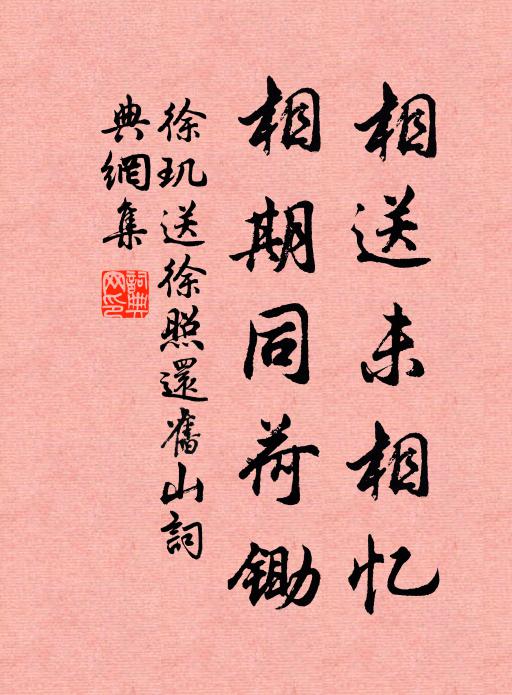 相送未相忆
相期同荷锄
徐玑送徐照還舊山詞
典網集
詞典网印